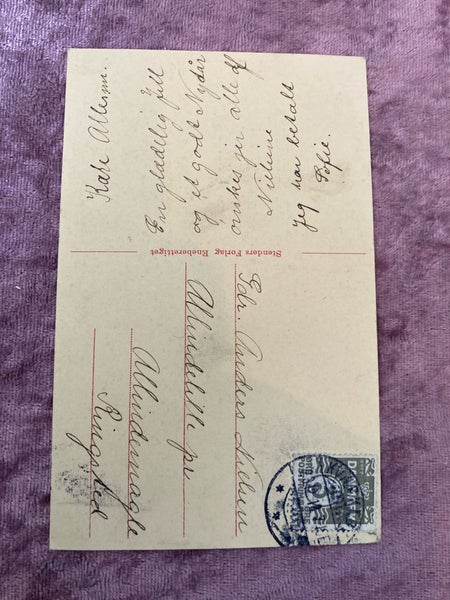 Kære Allesm.
En glædelig Jull
og et godt Nytår
ønskes jer alle af
Nielsine
jeg har betalt
Sofie.
Stenders Forlag Eneberettiget
Gdr. Anders Nielsen
Allindelille pr
Allindemagle
Ringsted
DANMARK